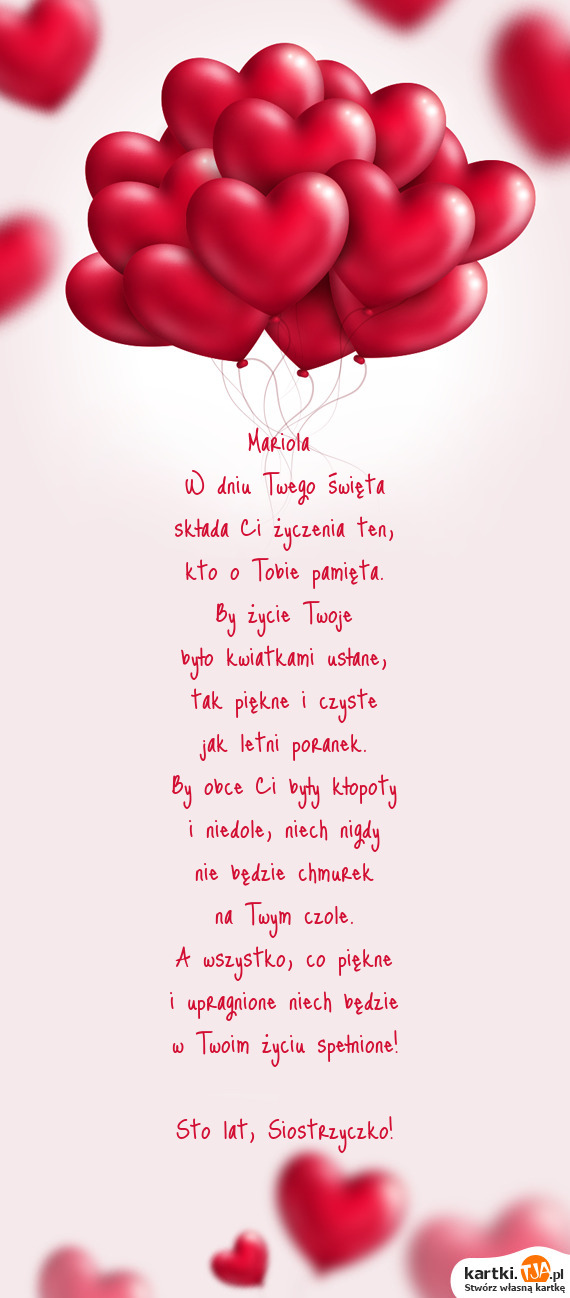 Mariola
W dniu Twego święta
składa Ci życzenia ten,
kto o Tobie pamięta.
By życie Twoje
było kwiatkami usłane,
tak piękne i czyste
jak letni poranek.
By obce Ci były kłopoty
i niedole, niech nigdy
nie będzie chmurek
na Twym czole.
A wszystko, co piękne
i upragnione niech będzie
w Twoim życiu spełnione!
Sto lat, Siostrzyczko!
kartki.TJA.pl
Stwórz własną kartkę